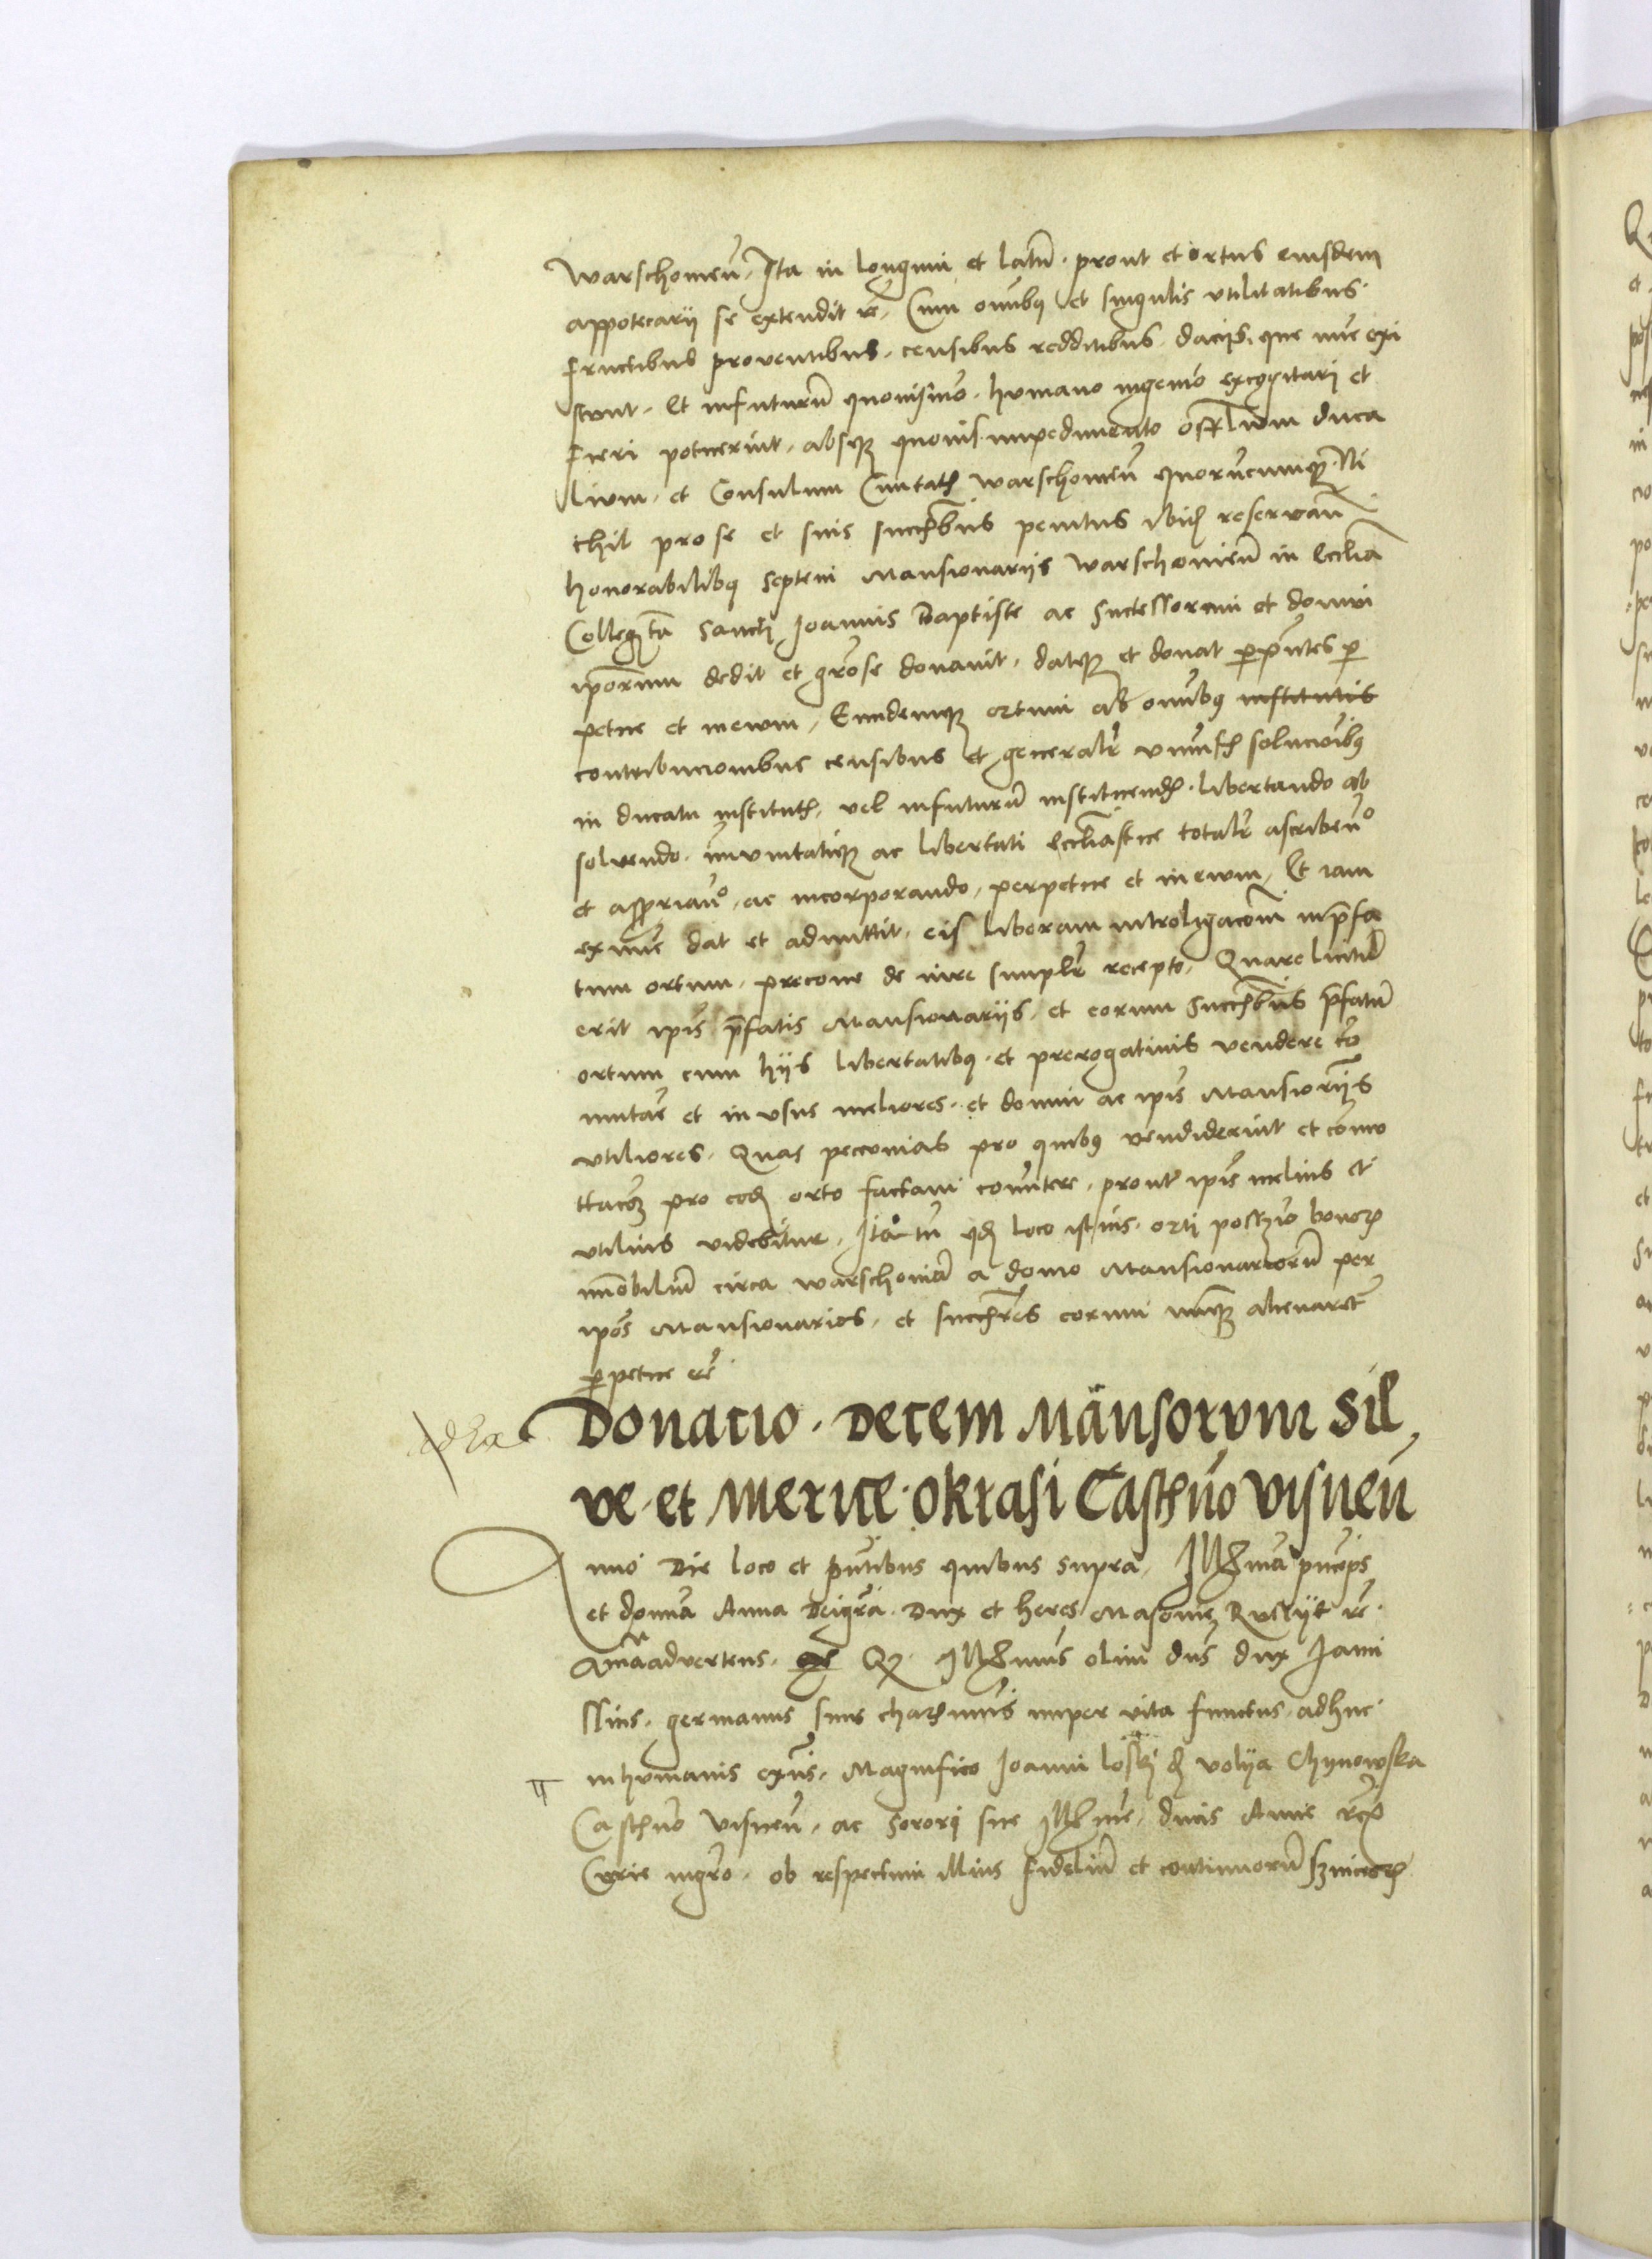 Warschowien̄. Ita in longum et latū. prout et ortus eiusdem
appotecarij se extendit rc̄. Cum om̄ibq et singulis vtilitatibus.
fructibus proventibus. censibus redditibus. dacijs. que nūc exi
stunt. Et infuturū quovismō. humano ingenio excogitari et
fieri potuerint. absqz quovis impedimento offīlium duca
lium. et Consulum Civitatꝭ Warschowien̄ quorūcumqz. Ni
chil pro se et suis succ̄ribus penitus ibidꝫ reservan̄
honorabilibq septem Mansionarijs Warschowien̄ in Ecclīa
Collegta Sancti Joannis Baptiste ac Successorum et domui
ip̄orum dedit et grōse donavit. datqz et donat p̄pn̄tes per
petue et in ewum. Eundemqz ortum ab om̄ibq institutis
contribucionibus censibus et generalr̄ vniusꝭ solucionibq
in ducatu institutꝭ. vel infuturū instituendꝭ. libertando ab
solvendo. im̄unitatiqz ac libertati Eccl̄iastice totalr̄ ascribenō
et approprianō. ac incorporando. perpetue et in ewum. Et iam
ex nūc dat et admittit. eis liberam intro ligacōem in p̄fa
tum ortum. precone de iure simplr̄ recepto. Quare licitū
erit ip̄is p̄fatis Mansionarijs. et eorum succ̄ribus p̄fatū
ortum cum hijs libertatibq. et prerogativis vendere cō
mutare et in vsus meliores. et domui ac ip̄is Mansiorījs
vtiliores. Quas peccunias pro quibq vendiderint et cōmu
tacōeꝫ pro eodꝫ orto factam cōvertere. prout ip̄is melius et
vtilius videbitur. Ita tn̄ qdꝫ loco istius. orti possessio bonorꝫ
īmobiliū circa Warschoviā a domo Mansionariorū per
ip̄os Mansionarios. et succ̄res eorum nūqz alienaret̄
p̄petue rc̄.
Donacio. Decem Mansorum Sil
ve et Merice. Okrasi Castllno Visnen̄
Anno Die loco et pn̄tibus quibus supra. Illmā princeps
et domīa Anna Dei grā. Dux et heres Masovie Russijē rc̄.
Animaadvertens. Qꝫ Illmus olim dn̄s dux Janu
ssius. germanus suus char̄mus nuper vita functus. adhuc
in humanis exn̄s. Magnifico Joanni loski dꝫ volija Chynowska
Castllno Visnen̄. ac Sorori sue Illme. ducis Anne
Curie mgrō. ob respectum illius fideliū et continuorū